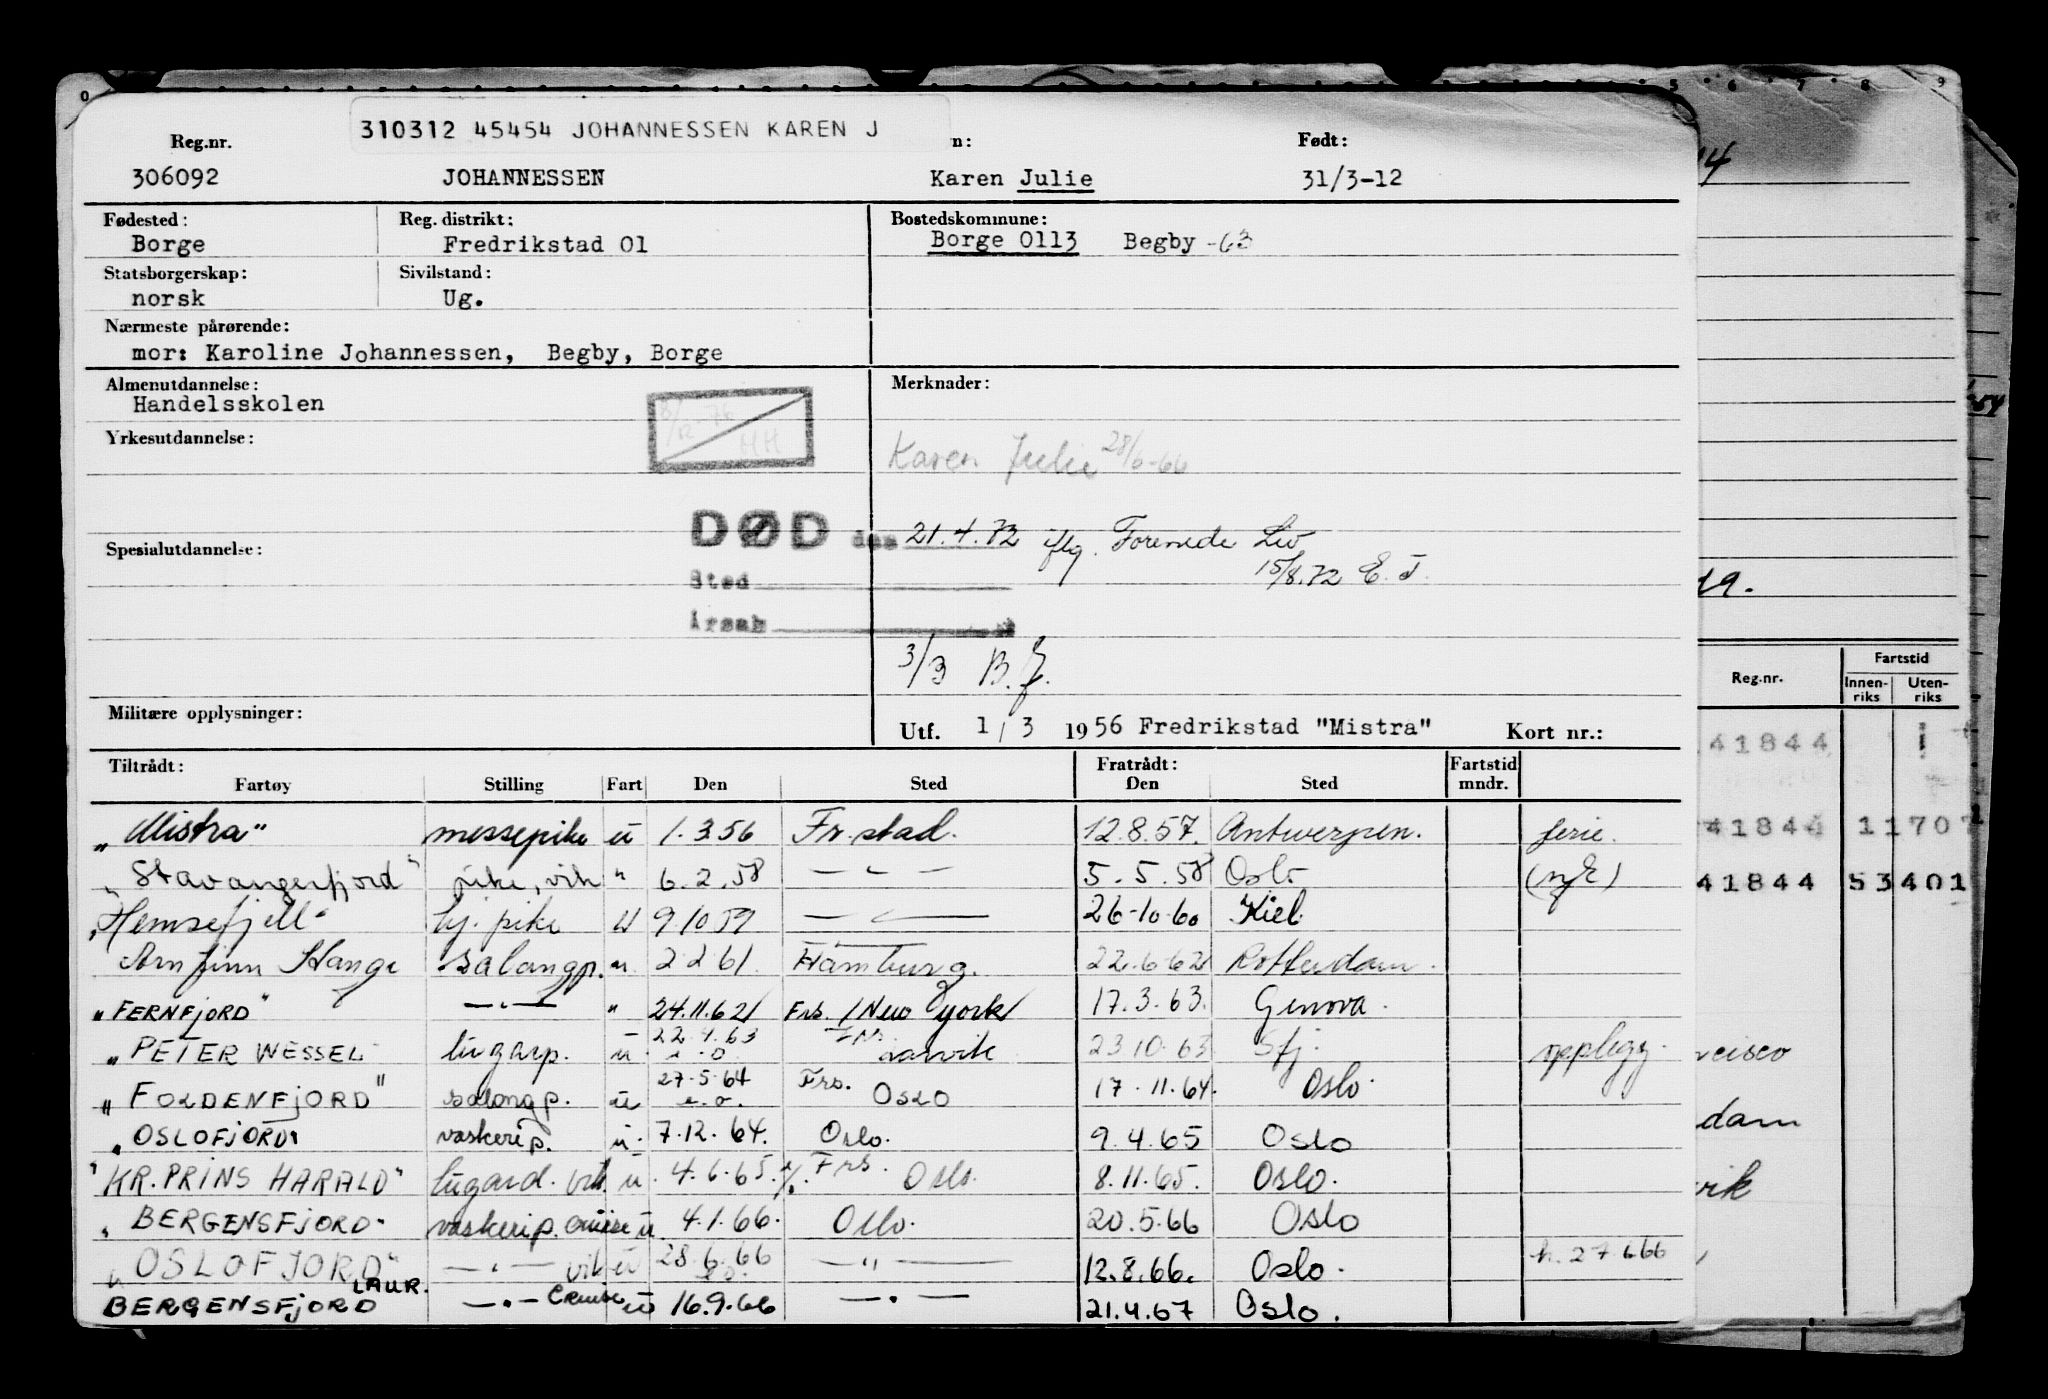 310312 45454 JOHANNESSEN KAREN J
Reg.nr. n: Født:
306092 JOHANNESSEN Karen Julie 31/3-12
Fødested: Reg. distrikt: Bostedskommune:
Borge Fredrikstad 01 Borge 0113 Begby -63
Statsborgerskap: Sivilstand:
norsk Ug.
Nærmeste pårørende:
mor: Karoline Johannessen, Begby, Borge
Almenutdannelse: Merknader:
Handelsskolen
Yrkesutdannelse:
HH
Karen Julie 28/6-66
DØD den 21.4.72 iflg. Forenede Liv
Spesialutdannelse: 15/8.72 E. J.
Sted
Årsak
3/3 B.J.
Militære opplysninger:
Utf. 1/3 1956 Fredrikstad "Mistra" Kort nr.:
Tiltrådt: Fratrådt: Fartstid
Fartøy Stilling Fart Den Sted Den Sted mndr.
"Mistra" messepike u 1.3.56 Fr.stad. 12.8.57. Antwerpen. ferie.
"Stavangerfjord" pike, vik " 6.2.58 — " — 5.5.58 Oslo
"Hemsefjell" pike u 9 10 59 — " — 26-10-60 Kiel
Arnfinn Stange salongp. u. 2 2 61 Hamburg. 22.6-62 Rotterdam.
"FERNFJORD" — " — " 24.11.62 Frs. / New York 17.3.63. Genova.
"PETER WESSEL" lugarp. u. 22.4.63 Larvik 23 10 63 Sfj. opplegg.
"FOLDENFJORD" salongp. u 27.5.64 Frs. OSLO 17.11.64. Oslo.
"OSLOFJORD" vaskerip. u. 7.12.64. Oslo. 9.4.65 Oslo
"KR.PRINS HARALD" lugard. vik. u. 4.6.65. Frs. Oslo. 8.11.65. Oslo.
"BERGENSFJORD" vaskerip. cruise u. 4.1.66. Oslo. 20.5.66 Oslo
"OSLOFJORD" — " — vik u 28.6.66 — " — 12.8.66. Oslo. 27.6.66
BERGENSFJORD LAUR. — " — Cruise u 16.9.66 — " — 21.4.67 Oslo.
0 5 6 7 8 9
19.
Reg.nr. Fartstid
Innen-riks Uten-riks
41844
41844 11707
41844 53401
cisco
dam
vik